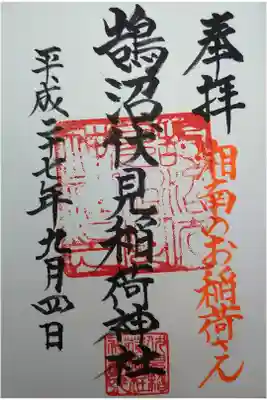 奉拝
湘南のお稲荷さん
鵠沼伏見稲荷神社
平成二十七年九月四日